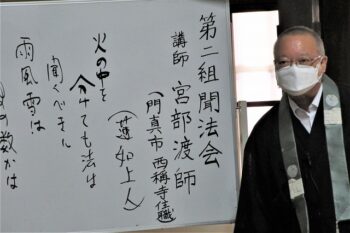 第二組聞法会
講師 宮部渡師
(門真市 西稱寺住職)
(蓮如上人)
火の中を
分けても法は
聞くべきに
雨風雪は
の数かは